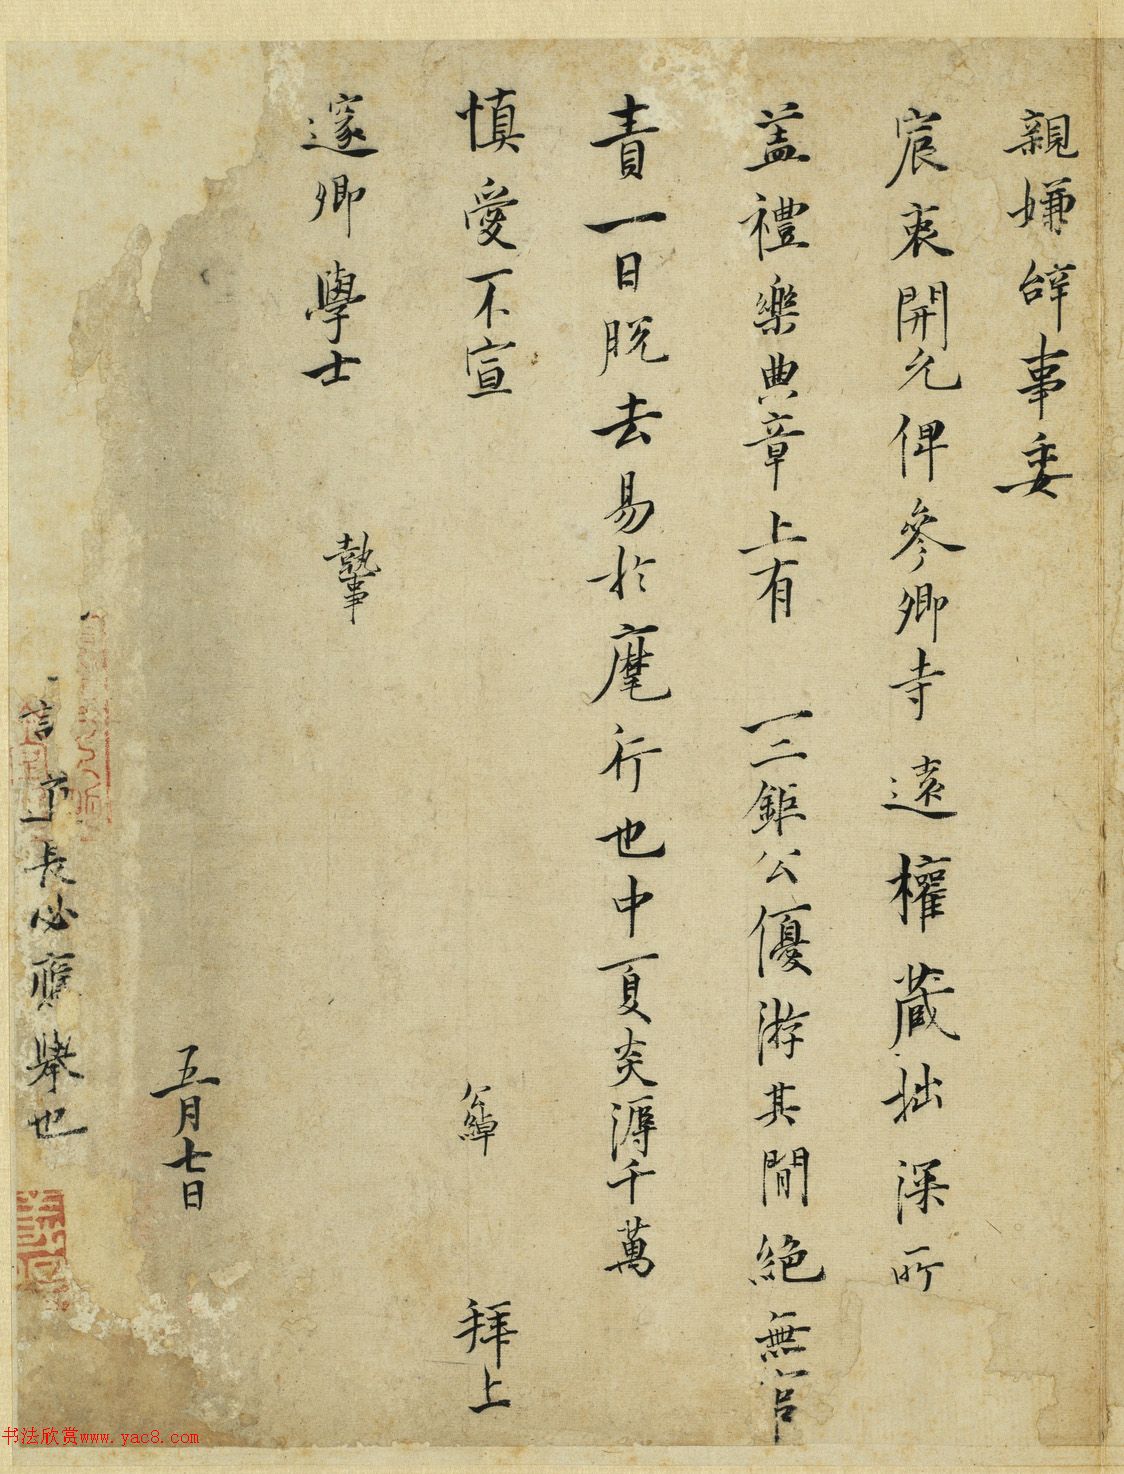 親嫌辭事委
宸衷開允俾參卿寺遠權藏拙深所
盖禮樂典章上有 一二鉅公優游其間絕無官
責一日脫去易於麾行也中夏炎溽千萬
慎愛不宣 公綽 拜上
邃卿學士 執事
五月七日
長必應舉也
书法欣赏www.yac8.com